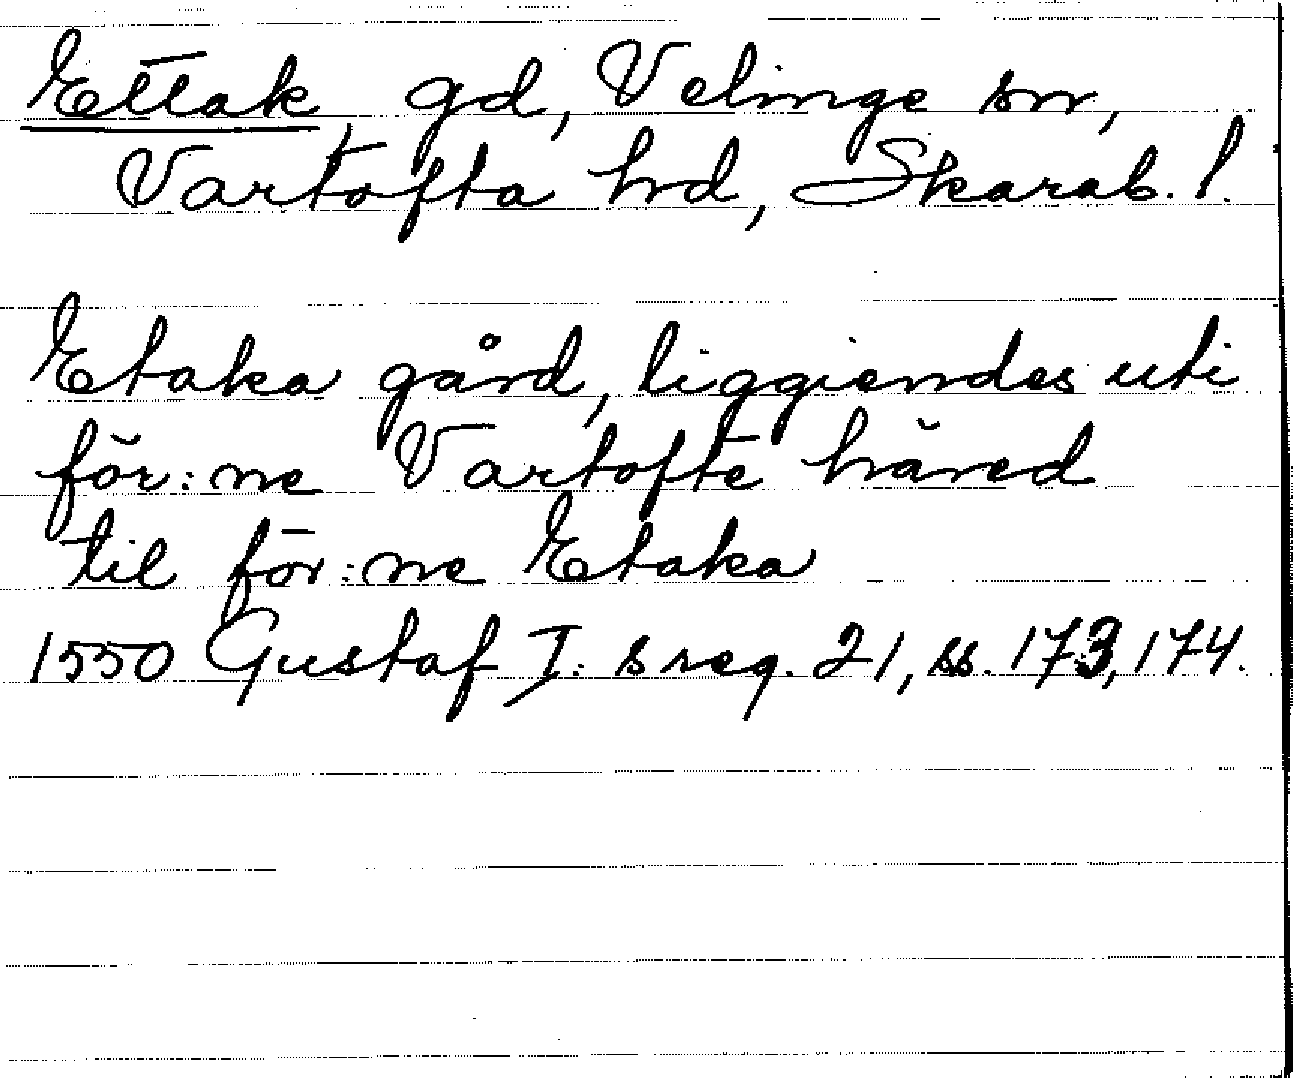 Ettak, gd, Velinge sn,
Vartofta hd, Skarab. l.
Etaka gård, liggiendes uti
för:ne Vartofte häred
til för:ne Etaka
1550 Gustaf I:s reg. 21, ss. 173, 174.